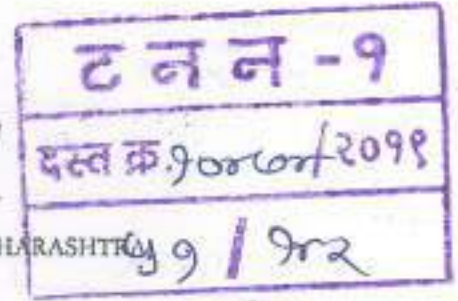 ट न न - १
दस्त क्र. १४७४/२०१९
HARASHTRA ५१ / १४२